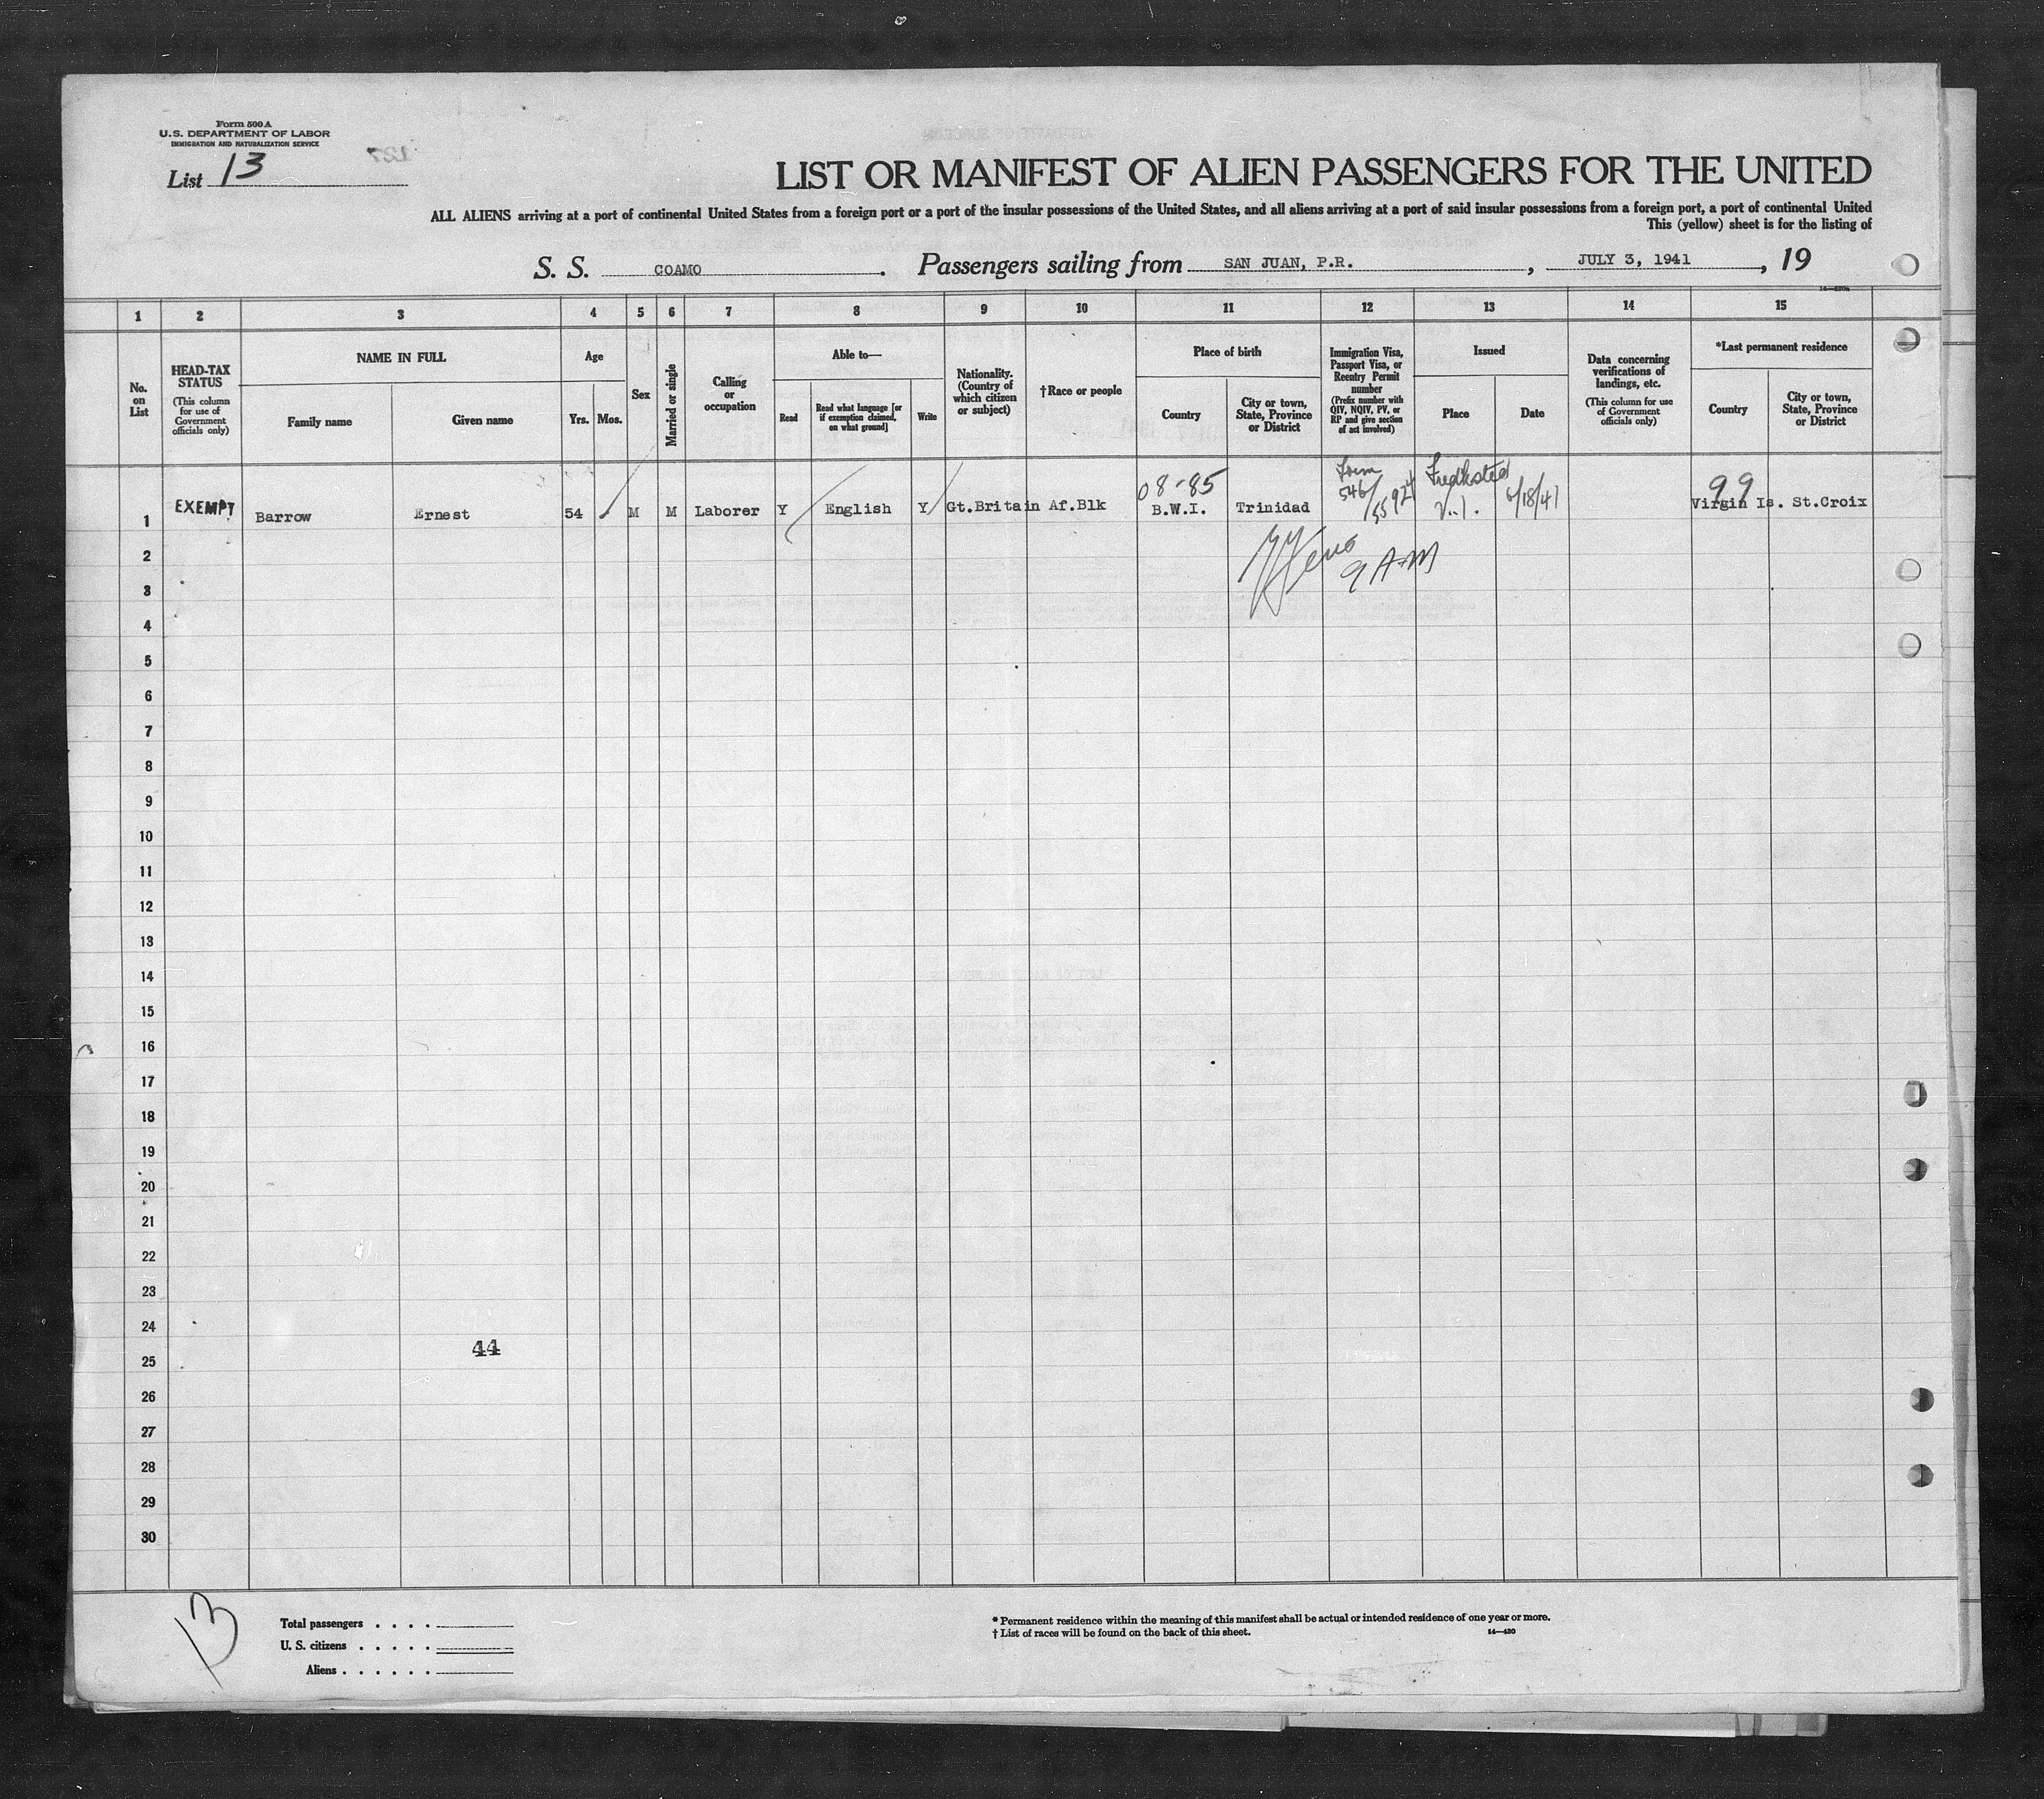 Form 500 A
U.S. DEPARTMENT OF LABOR
IMMIGRATION AND NATURALIZATION SERVICE
127
List 13
LIST OR MANIFEST OF ALIEN PASSENGERS FOR THE UNITED
ALL ALIENS arriving at a port of continental United States from a foreign port or a port of the insular possessions of the United States, and all aliens arriving at a port of said insular possessions from a foreign port, a port of continental United
This (yellow) sheet is for the listing of
S. S. COAMO. Passengers sailing from SAN JUAN, P.R., JULY 3, 1941, 19
1 2 3 4 5 6 7 8 9 10 11 12 13 14 15
No. on List
HEAD-TAX STATUS
(This column for use of Government officials only)
NAME IN FULL
Family name
Given name
Age
Yrs.
Mos.
Sex
Married or single
Calling or occupation
Able to—
Read
Read what language [or if exemption claimed, on what ground]
Write
Nationality. (Country of which citizen or subject)
†Race or people
Place of birth
Country
City or town, State, Province or District
Immigration Visa, Passport Visa, or Reentry Permit number
(Prefix number with QIV, NQIV, PV, or RP and give section of act involved)
Issued
Place
Date
Data concerning verifications of landings, etc.
(This column for use of Government officials only)
*Last permanent residence
Country
City or town, State, Province or District
08-85
Form 546/
99
1 EXEMPT Barrow Ernest 54 M M Laborer Y English Y Gt.Britain Af.Blk B.W.I. Trinidad Fredksted V.I. 6/18/41 Virgin Is. St.Croix
9 AM
2
3
4
5
6
7
8
9
10
11
12
13
14
15
16
17
18
19
20
21
22
23
24
44
25
26
27
28
29
30
13
Total passengers . . . .
U. S. citizens . . . . .
Aliens . . . . . .
* Permanent residence within the meaning of this manifest shall be actual or intended residence of one year or more.
† List of races will be found on the back of this sheet.
14—430